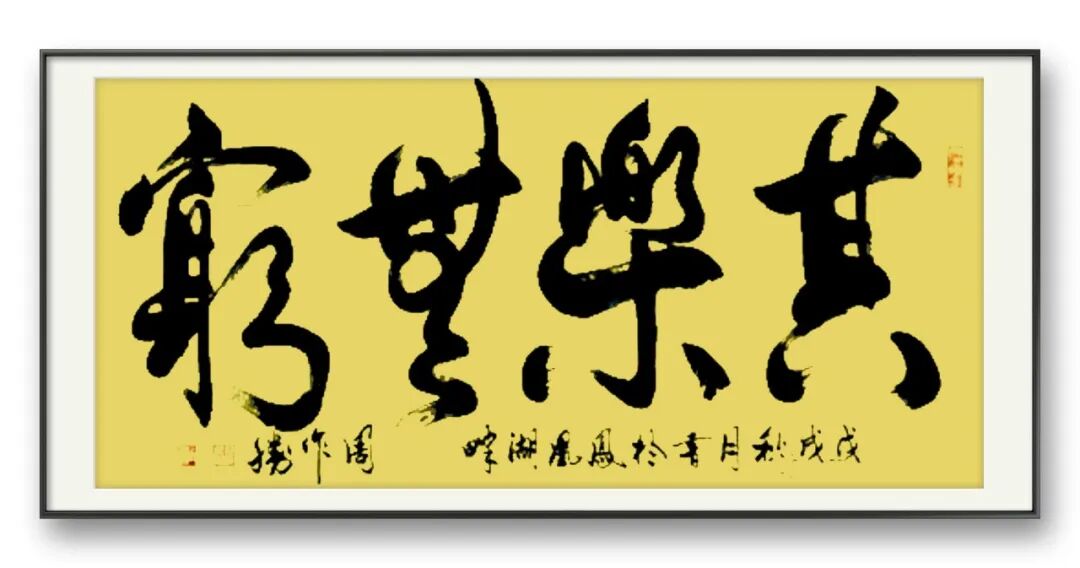 其樂無窮
戊戌秋月書於鳳凰湖畔 周作勝